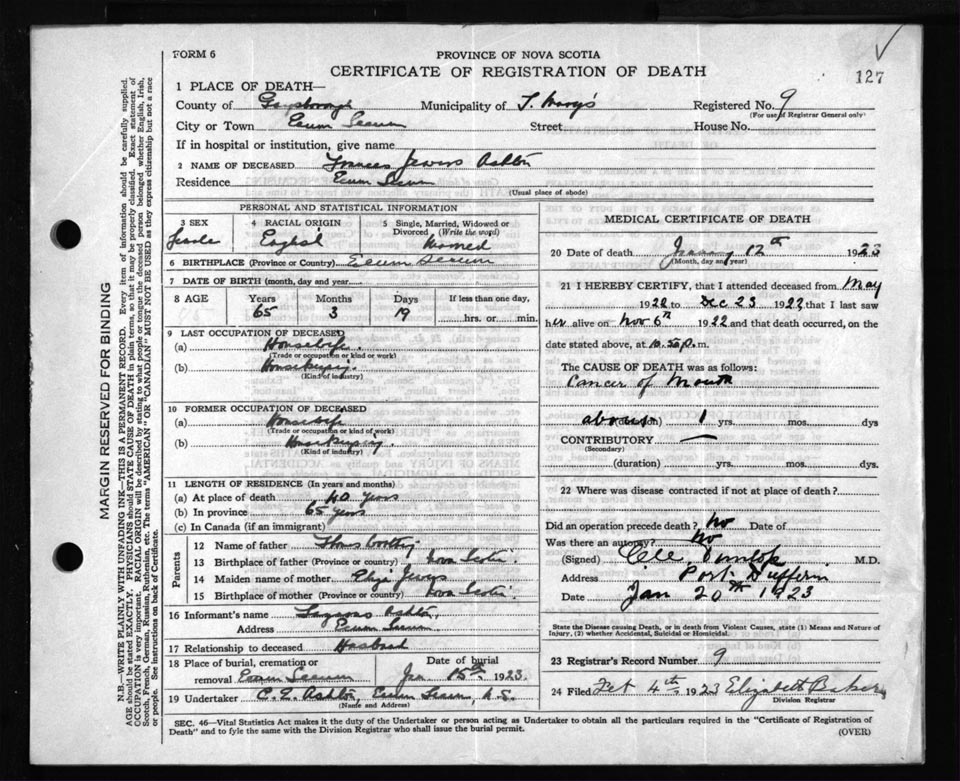 FORM 6
PROVINCE OF NOVA SCOTIA
CERTIFICATE OF REGISTRATION OF DEATH
127
1 PLACE OF DEATH—
County of Guysborough Municipality of St. Mary's Registered No. 9
(For use of Registrar General only)
City or Town Ecum Secum Street House No.
If in hospital or institution, give name
2 NAME OF DECEASED Frances Jewers Ashton
Residence Ecum Secum
(Usual place of abode)
PERSONAL AND STATISTICAL INFORMATION
3 SEX 4 RACIAL ORIGIN 5 Single, Married, Widowed or Divorced (Write the word)
Female English Married
6 BIRTHPLACE (Province or Country) Ecum Secum
7 DATE OF BIRTH (month, day and year)
8 AGE Years Months Days If less than one day,
65 3 19 hrs. or min.
9 LAST OCCUPATION OF DECEASED
(a) Housewife
(Trade or occupation or kind or work)
(b) Housekeeping
(Kind of industry)
10 FORMER OCCUPATION OF DECEASED
(a) Housewife
(Trade or occupation or kind of work)
(b) Housekeeping
(Kind of industry)
11 LENGTH OF RESIDENCE (In years and months)
(a) At place of death 40 years
(b) In province 65 years
(c) In Canada (if an immigrant)
Parents
12 Name of father
13 Birthplace of father (Province or country) Nova Scotia
14 Maiden name of mother Jewers
15 Birthplace of mother (Province or country) Nova Scotia
16 Informant's name Ashton
Address Ecum Secum
17 Relationship to deceased Husband
18 Place of burial, cremation or removal Ecum Secum
Date of burial Jan 15th 1923.
19 Undertaker C. E. Ashton, Ecum Secum, N.S.
(Name and Address)
MEDICAL CERTIFICATE OF DEATH
20 Date of death January 12th 1923
(Month, day and year)
21 I HEREBY CERTIFY, that I attended deceased from May
1922 to Dec 23 1922, that I last saw
her alive on Nov 6th 1922 and that death occurred, on
date stated above, at p.m.
The CAUSE OF DEATH was as follows:
Cancer of Mouth
about (duration) 1 yrs. mos. dys
CONTRIBUTORY —
(Secondary)
(duration) yrs. mos. dys.
22 Where was disease contracted if not at place of death?
Did an operation precede death? No Date of
Was there an autopsy? No
(Signed) Dunlop M.D.
Address Port Dufferin
Date Jan 20th 1923
State the Disease causing Death, or in death from Violent Causes, state (1) Means and Nature of
Injury, (2) whether Accidental, Suicidal or Homicidal.
23 Registrar's Record Number 9
24 Filed Feb 4th 1923 Elizabeth Baker
Division Registrar
SEC. 46—Vital Statistics Act makes it the duty of the Undertaker or person acting as Undertaker to obtain all the particulars required in the "Certificate of Registration of
Death" and to fyle the same with the Division Registrar who shall issue the burial permit.
(OVER)
MARGIN RESERVED FOR BINDING
N.B.—WRITE PLAINLY WITH UNFADING INK—THIS IS A PERMANENT RECORD. Every item of information should be carefully supplied.
AGE should be stated EXACTLY. PHYSICIANS should STATE CAUSE OF DEATH in plain terms, so that it may be properly classified. Exact statement of
OCCUPATION is very important. RACIAL ORIGIN will be described by stating to what people or tongue the deceased person belonged whether English, Irish,
Scotch, French, German, Russian, Ruthenian, etc. The terms "AMERICAN" OR "CANADIAN" MUST NOT BE USED as they express citizenship but not a race
or people. See instructions on back of Certificate.